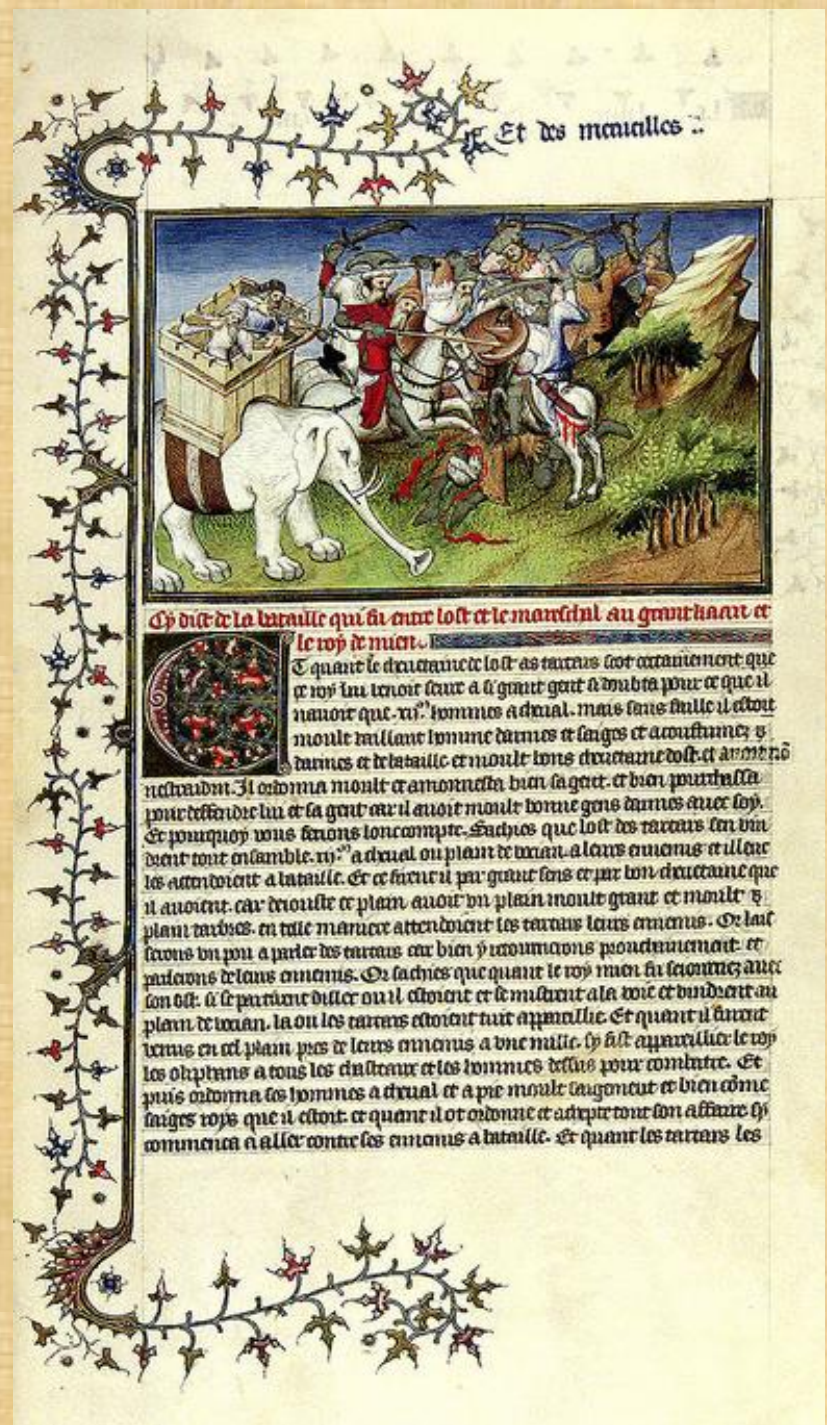 Et des merueilles
Cy dist de la bataille qui fu entre lost et le mareschal au grant kaan et
le roy de mien.
Et quant le cheuetaine de lost as tartars scot certainement que
ce roy lui venoit seure a si grant gent si doubta pour ce que il
nauoit que .xij. hommes a cheual. mais sans faille il estoit
moult vaillant homme darmes et saiges et acoustumez
darmes et de bataille et moult bons cheuetaine dost. et auoit nõ
nestraidin. Il ordonna moult et amonnesta bien sa gent. et bien pourchassa
pour deffendre lui et sa gent car il auoit moult bonne gens darmes auec soy.
Et pourquoy vous ferons lonc compte. Sachies que lost des tartars sen vin
drent tout ensamble .xij. a cheual ou plain de vocian. a leurs ennemis et illenc
les attendoient a bataille. Et ce firent il par grant sens et par bon cheuetaine que
il auoient. car de iouste ce plain auoit vn plain moult grant et moult
plain darbres. en telle maniere attendoient les tartars leurs ennemis. Or lais
serons vn pou a parler des tartars car bien y retournerons prouchainement. et
parlerons de leurs ennemis. Or sachies que quant le roy mien fu seiournez auec
son ost. si se partirent diller ou il estoient et se mistrent a la voie et vindrent au
plain de vocian. la ou les tartars estoient tuit appareillie. Et quant il furent
venus en cel plain pres de leurs ennemis a vne mille. sy fist appareillier le roy
les oliphans a tous les chasteaux et les hommes dessus pour combatre. Et
puis ordonna ses hommes a cheual et a pie moult saigement et bien cõme
saiges roys que il estoit. et quant il ot ordonne et tout son affaire sy
commenca a aller contre ses ennemis a bataille. Et quant les tartars les